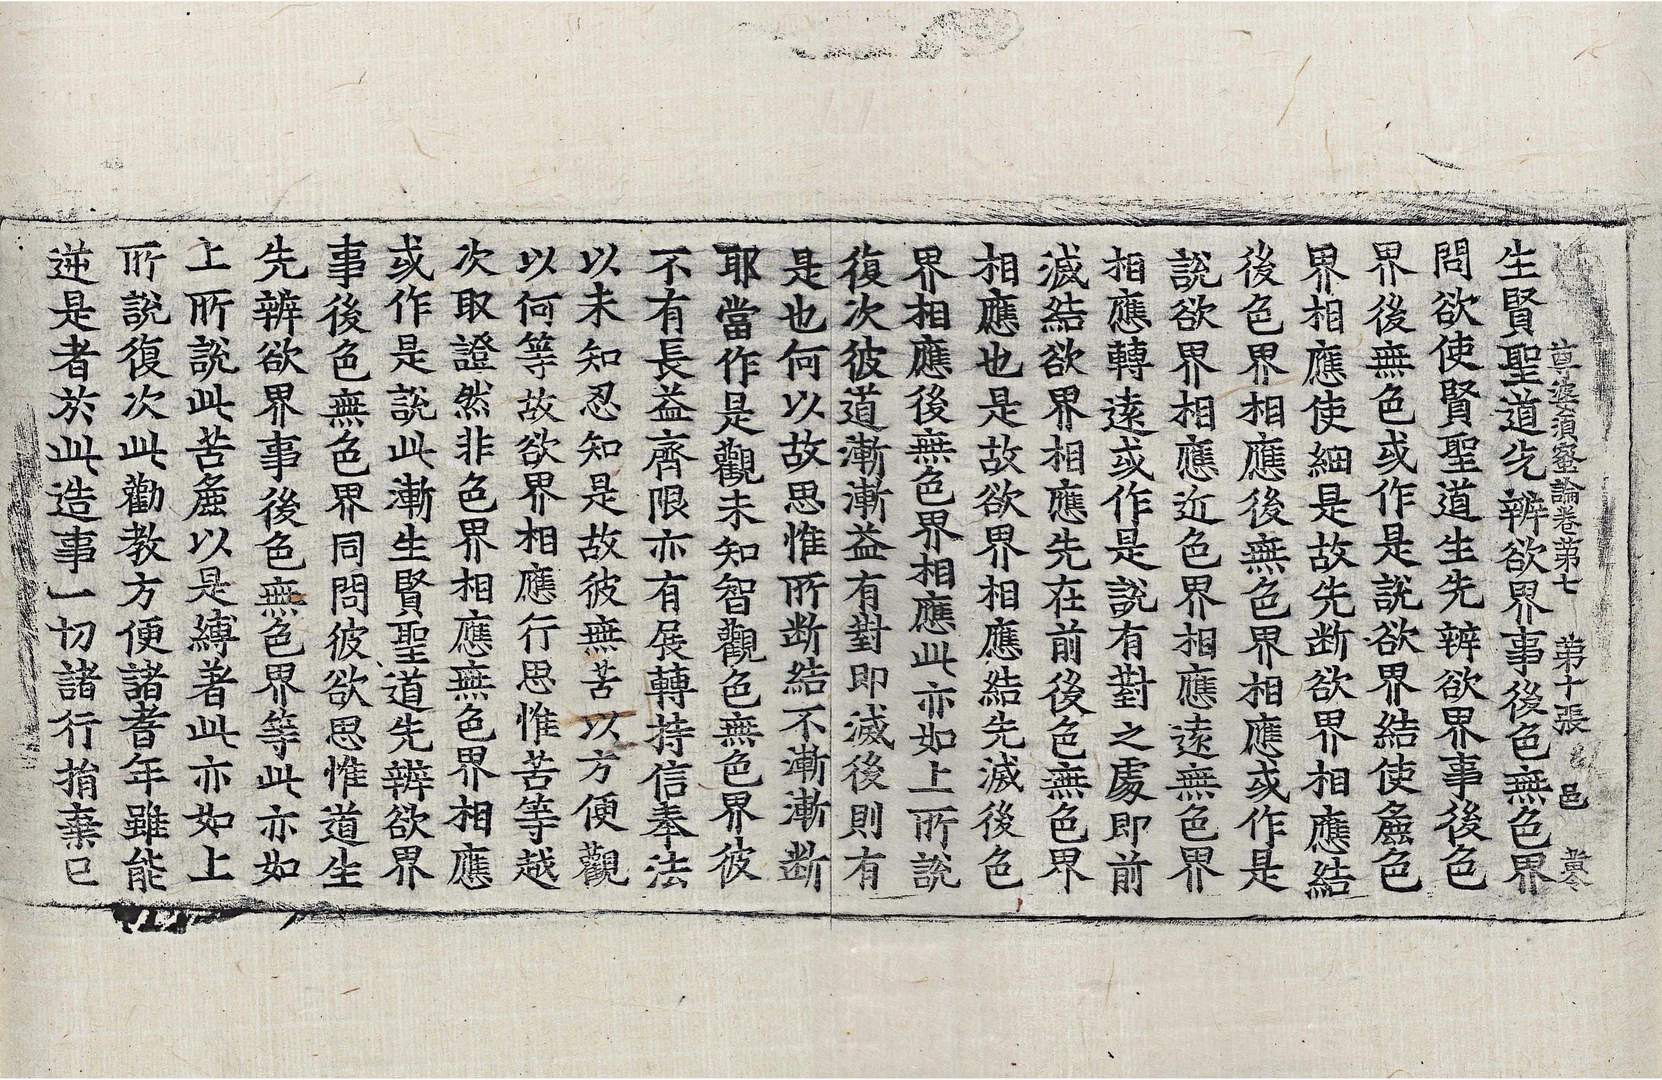 尊婆湏蜜論卷第七 第十張 邑 黃令
生賢聖道先辨欲界事後色無色界
問欲使賢聖道生先辨欲界事後色
界後無色或作是說欲界結使麁色
界相應使細是故先断欲界相應結
後色界相應後無色界相應或作是
說欲界相應近色界相應遠無色界
相應轉遠或作是說有對之處即前
滅結欲界相應先在前後色無色界
相應也是故欲界相應結先滅後色
界相應後無色界相應此亦如上所說
復次彼道漸漸益有對即滅後則有
是也何以故思惟所断結不漸漸断
耶當作是觀未知智觀色無色界彼
不有長益齊限亦有展轉持信奉法
以未知忍知是故彼無苦以方便觀
以何等故欲界相應行思惟苦等越
次取證然非色界相應無色界相應
或作是說此漸生賢聖道先辨欲界
事後色無色界同問彼欲思惟道生
先辨欲界事後色無色界等此亦如
上所說此苦麁以是縛著此亦如上
所說復次此勸教方便諸耆年雖能
逆是者於此造事一切諸行捐棄已